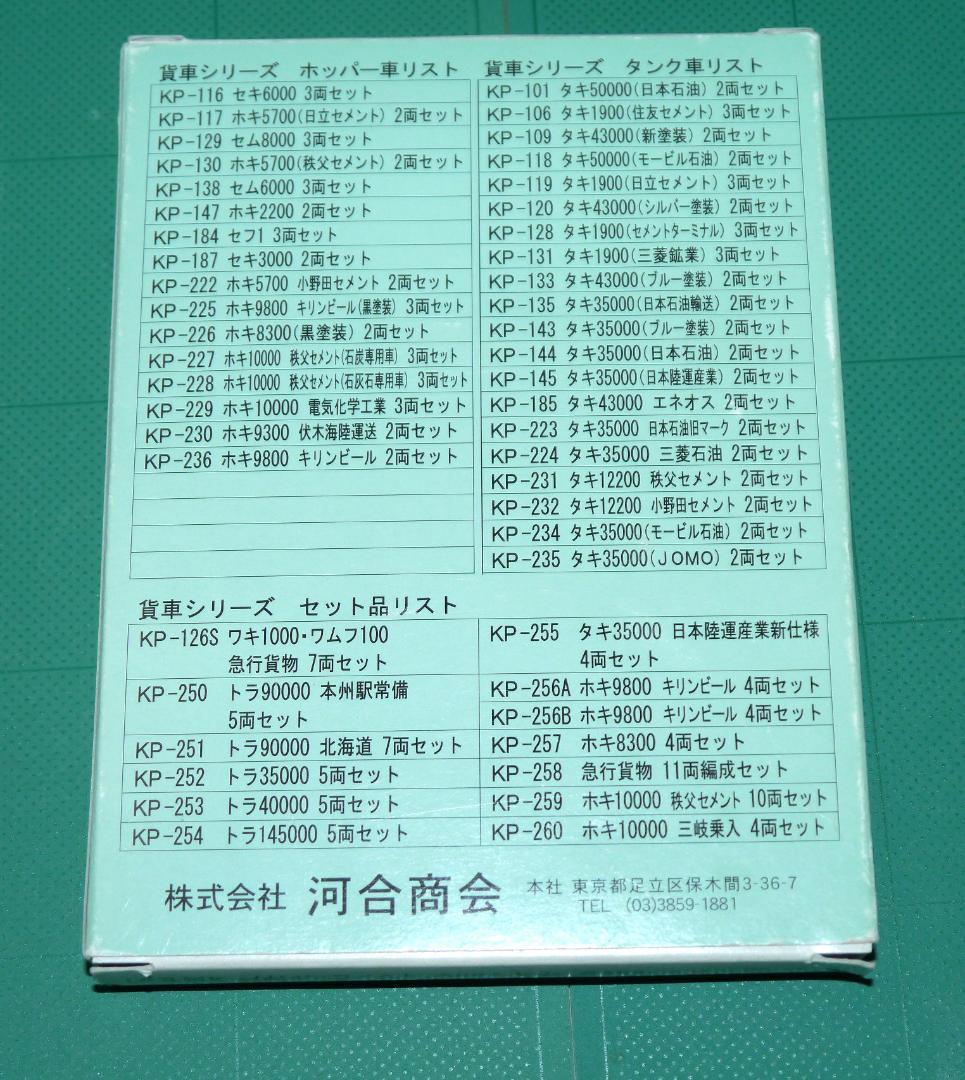 貨車シリーズ ホッパー車リスト
KP-116 セキ6000 3両セット
KP-117 ホキ5700(日立セメント) 2両セット
KP-129 セム8000 3両セット
KP-130 ホキ5700(秩父セメント) 2両セット
KP-138 セム6000 3両セット
KP-147 ホキ2200 2両セット
KP-184 セフ1 3両セット
KP-187 セキ3000 2両セット
KP-222 ホキ5700 小野田セメント 2両セット
KP-225 ホキ9800 キリンビール(黒塗装) 3両セット
KP-226 ホキ8300(黒塗装) 2両セット
KP-227 ホキ10000 秩父セメント(石炭専用車) 3両セット
KP-228 ホキ10000 秩父セメント(石灰石専用車) 3両セット
KP-229 ホキ10000 電気化学工業 3両セット
KP-230 ホキ9300 伏木海陸運送 2両セット
KP-236 ホキ9800 キリンビール 2両セット
貨車シリーズ タンク車リスト
KP-101 タキ50000(日本石油) 2両セット
KP-106 タキ1900(住友セメント) 3両セット
KP-109 タキ43000(新塗装) 2両セット
KP-118 タキ50000(モービル石油) 2両セット
KP-119 タキ1900(日立セメント) 3両セット
KP-120 タキ43000(シルバー塗装) 2両セット
KP-128 タキ1900(セメントターミナル) 3両セット
KP-131 タキ1900(三菱鉱業) 3両セット
KP-133 タキ43000(ブルー塗装) 2両セット
KP-135 タキ35000(日本石油輸送) 2両セット
KP-143 タキ35000(ブルー塗装) 2両セット
KP-144 タキ35000(日本石油) 2両セット
KP-145 タキ35000(日本陸運産業) 2両セット
KP-185 タキ43000 エネオス 2両セット
KP-223 タキ35000 日本石油旧マーク 2両セット
KP-224 タキ35000 三菱石油 2両セット
KP-231 タキ12200 秩父セメント 2両セット
KP-232 タキ12200 小野田セメント 2両セット
KP-234 タキ35000(モービル石油) 2両セット
KP-235 タキ35000(JOMO) 2両セット
貨車シリーズ セット品リスト
KP-126S ワキ1000・ワムフ100
急行貨物 7両セット
KP-250 トラ90000 本州駅常備
5両セット
KP-251 トラ90000 北海道 7両セット
KP-252 トラ35000 5両セット
KP-253 トラ40000 5両セット
KP-254 トラ145000 5両セット
KP-255 タキ35000 日本陸運産業新仕様
4両セット
KP-256A ホキ9800 キリンビール 4両セット
KP-256B ホキ9800 キリンビール 4両セット
KP-257 ホキ8300 4両セット
KP-258 急行貨物 11両編成セット
KP-259 ホキ10000 秩父セメント 10両セット
KP-260 ホキ10000 三岐乗入 4両セット
株式会社 河合商会
本社 東京都足立区保木間3-36-7
TEL (03)3859-1881